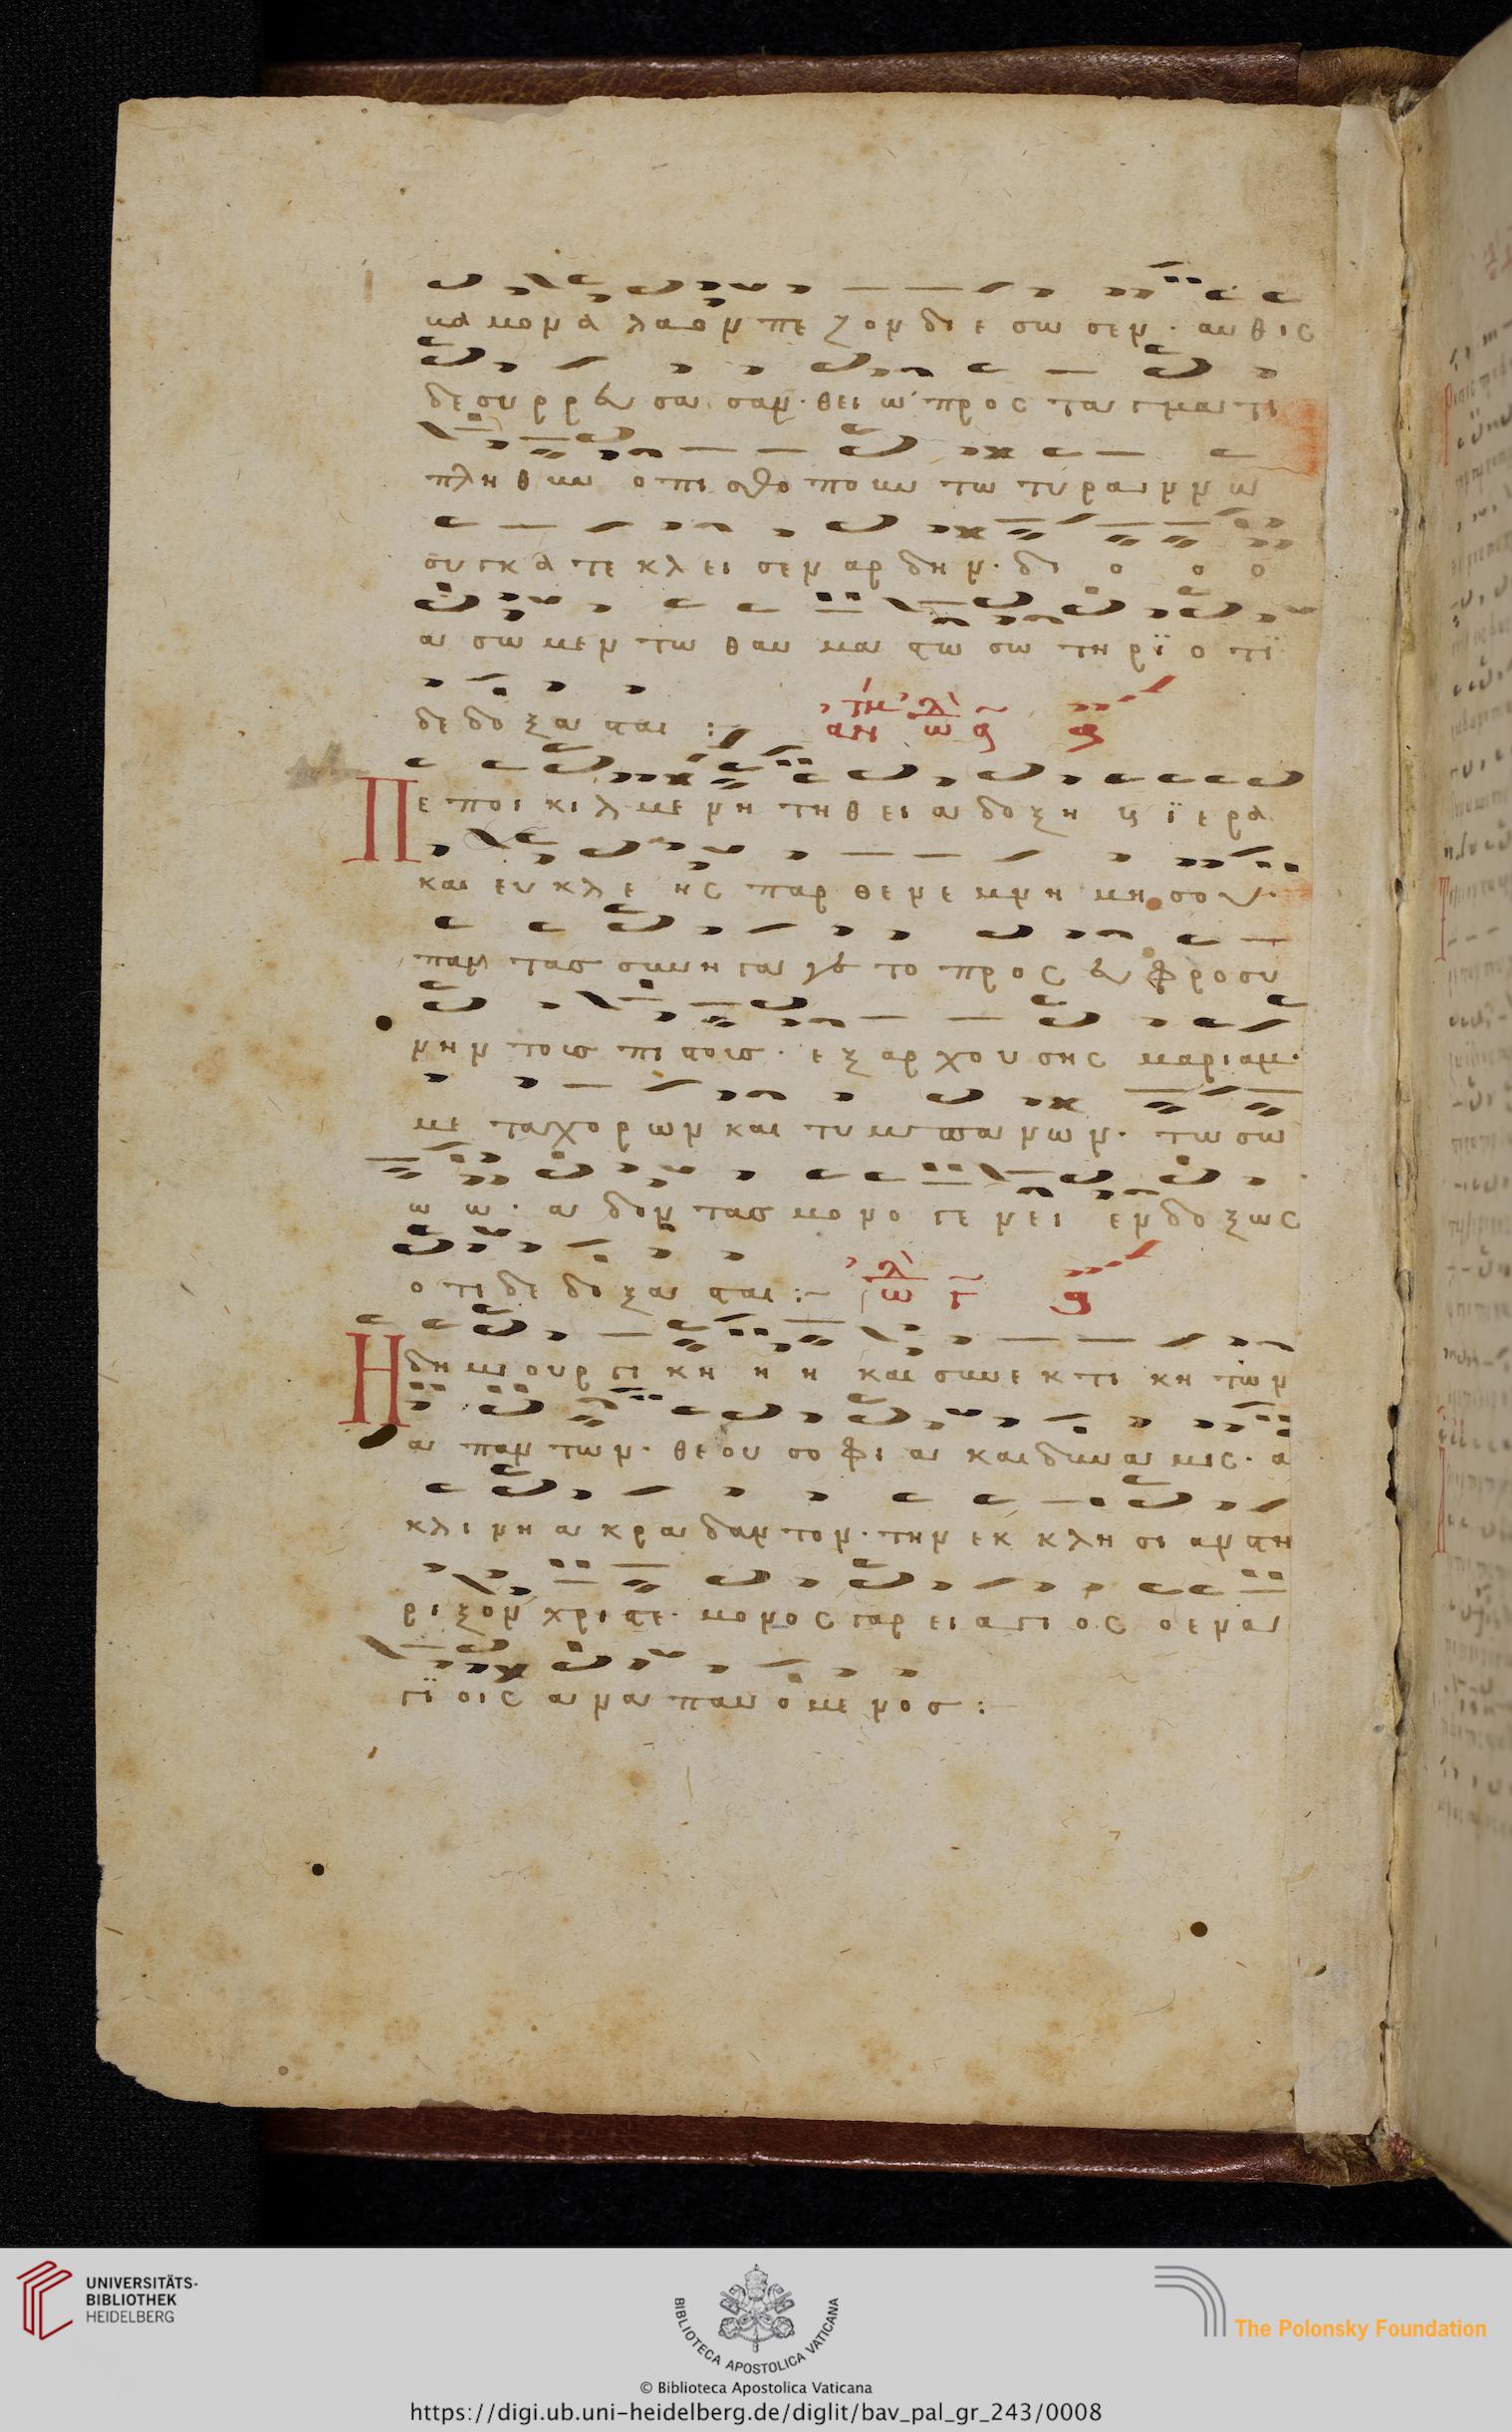 λαον πεζον διεσωσεν · αυθις
δε συρρευσασαν · θειω προσταγματι
πληθυν οπισθοπουν τω τυραννω
συγκατεκλεισεν αρδην · δι ο ο ο
ασωμεν τω θαυμαστω σωτηρϊ οτϊ
δεδοξασται :~
Πεποικιλμενη τη θεια δοξη η ϊερα
και ευκλεης παρθενε μνημη σου ·
παντας συνηγαγετο προς ευφροσυ
νην τους πιστους · εξαρχουσης μαριαμ ·
μετα χορων και τυμπανων · τω σω
ω ω · αδοντας μονογενει ενδοξως
οτι δεδοξασται :~
Η δημιουργικη η η και συνεκτικη των
απαντων · θεου σοφια και δυναμις · α
κλινη ακραδαντον · την εκκλησιαν στη
ριξον χριστε · μονος γαρ ει αγιος ο εν α
γϊοις αναπαυομενος :
UNIVERSITÄTS-
BIBLIOTHEK
HEIDELBERG
BIBLIOTECA APOSTOLICA VATICANA
The Polonsky Foundation
© Biblioteca Apostolica Vaticana
https://digi.ub.uni-heidelberg.de/diglit/bav_pal_gr_243/0008